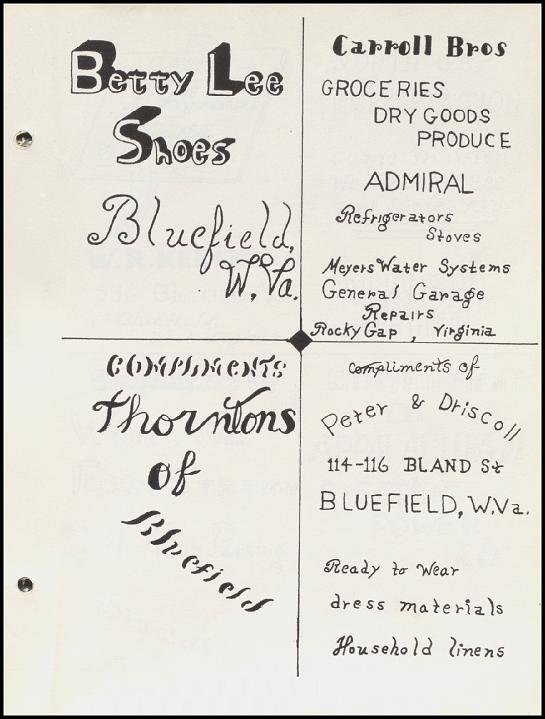 Betty Lee
Shoes
Bluefield,
W.Va.
Carroll Bros
GROCERIES
DRY GOODS
PRODUCE
ADMIRAL
Refrigerators
Stoves
Meyers Water Systems
General Garage
Repairs
Rocky Gap, Virginia
COMPLIMENTS
Thorntons
Of
Bluefield
compliments of
Peter & Driscoll
114-116 BLAND St
BLUEFIELD, W.Va.
Ready to Wear
dress materials
Household linens